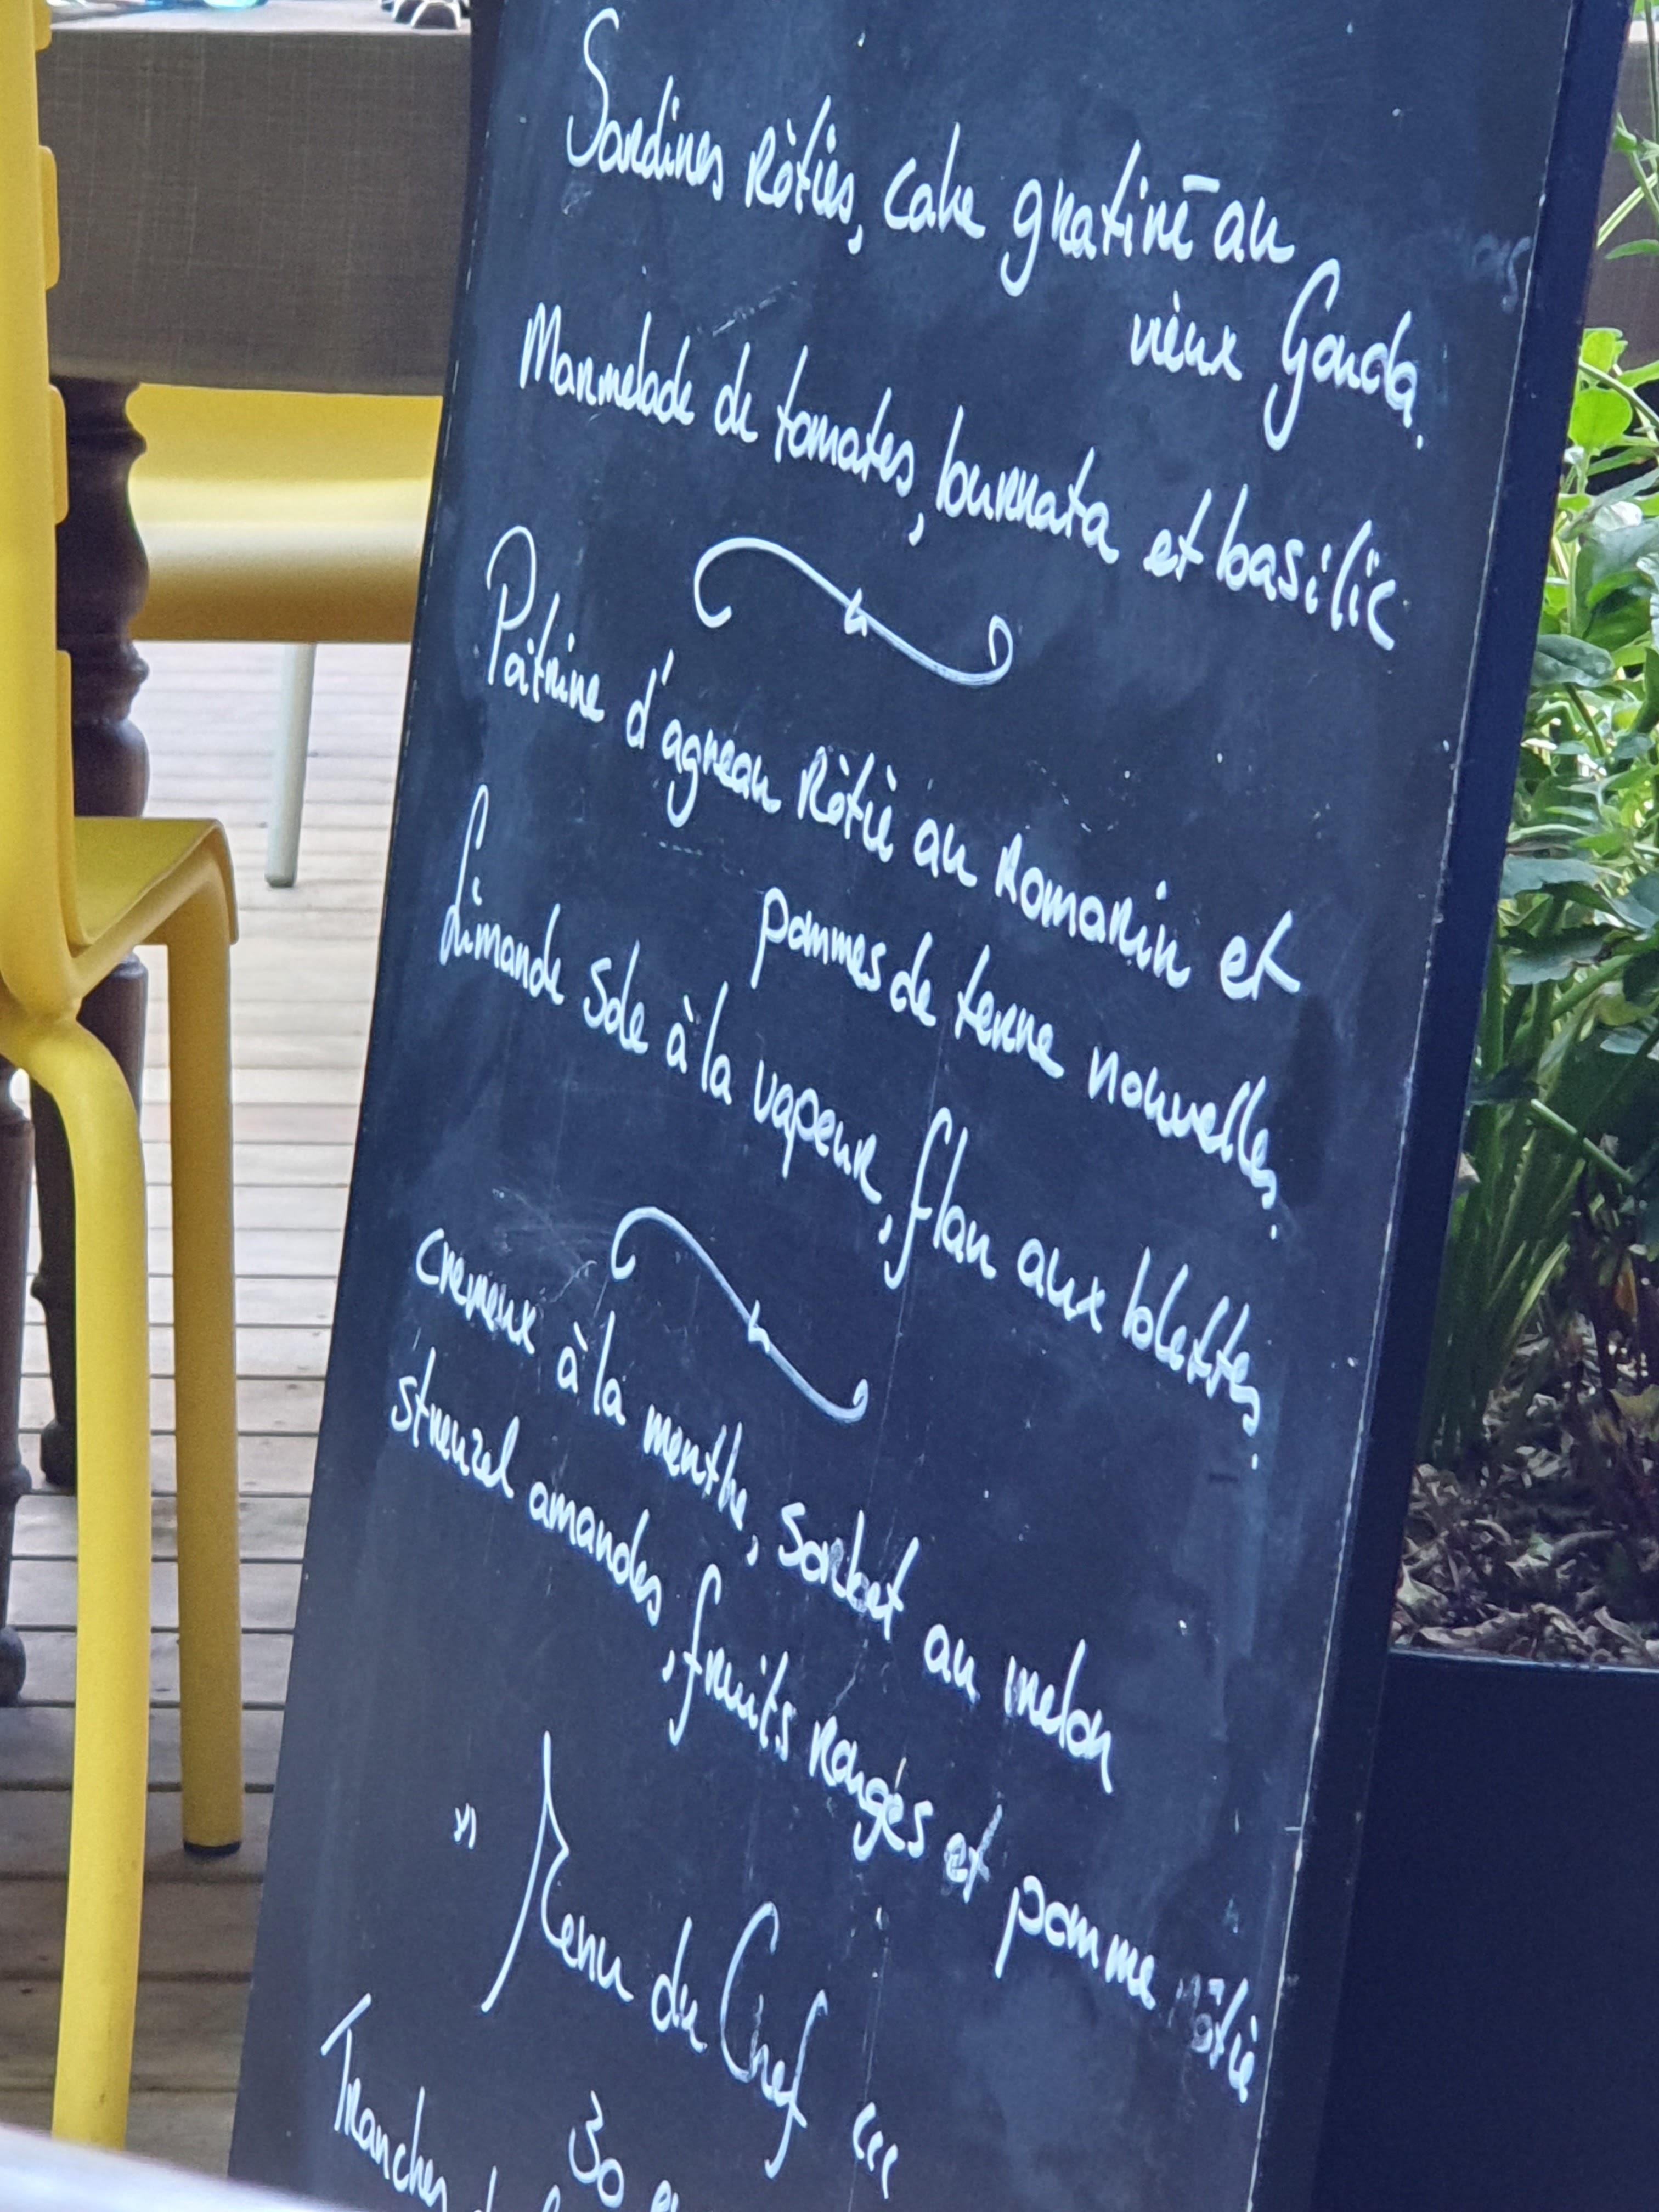 Sardines Rôties, cake gratiné au
vieux Gouda.
Marmelade de tomates, burrata et basilic
Poitrine d'agneau Rôtie au Romarin et
pommes de terre nouvelles.
Limande sole à la vapeur, flan aux blettes.
cremeux à la menthe, sorbet au melon
streuzel amandes, fruits rouges et pomme rôtie
" Menu du Chef "
30
Tranches